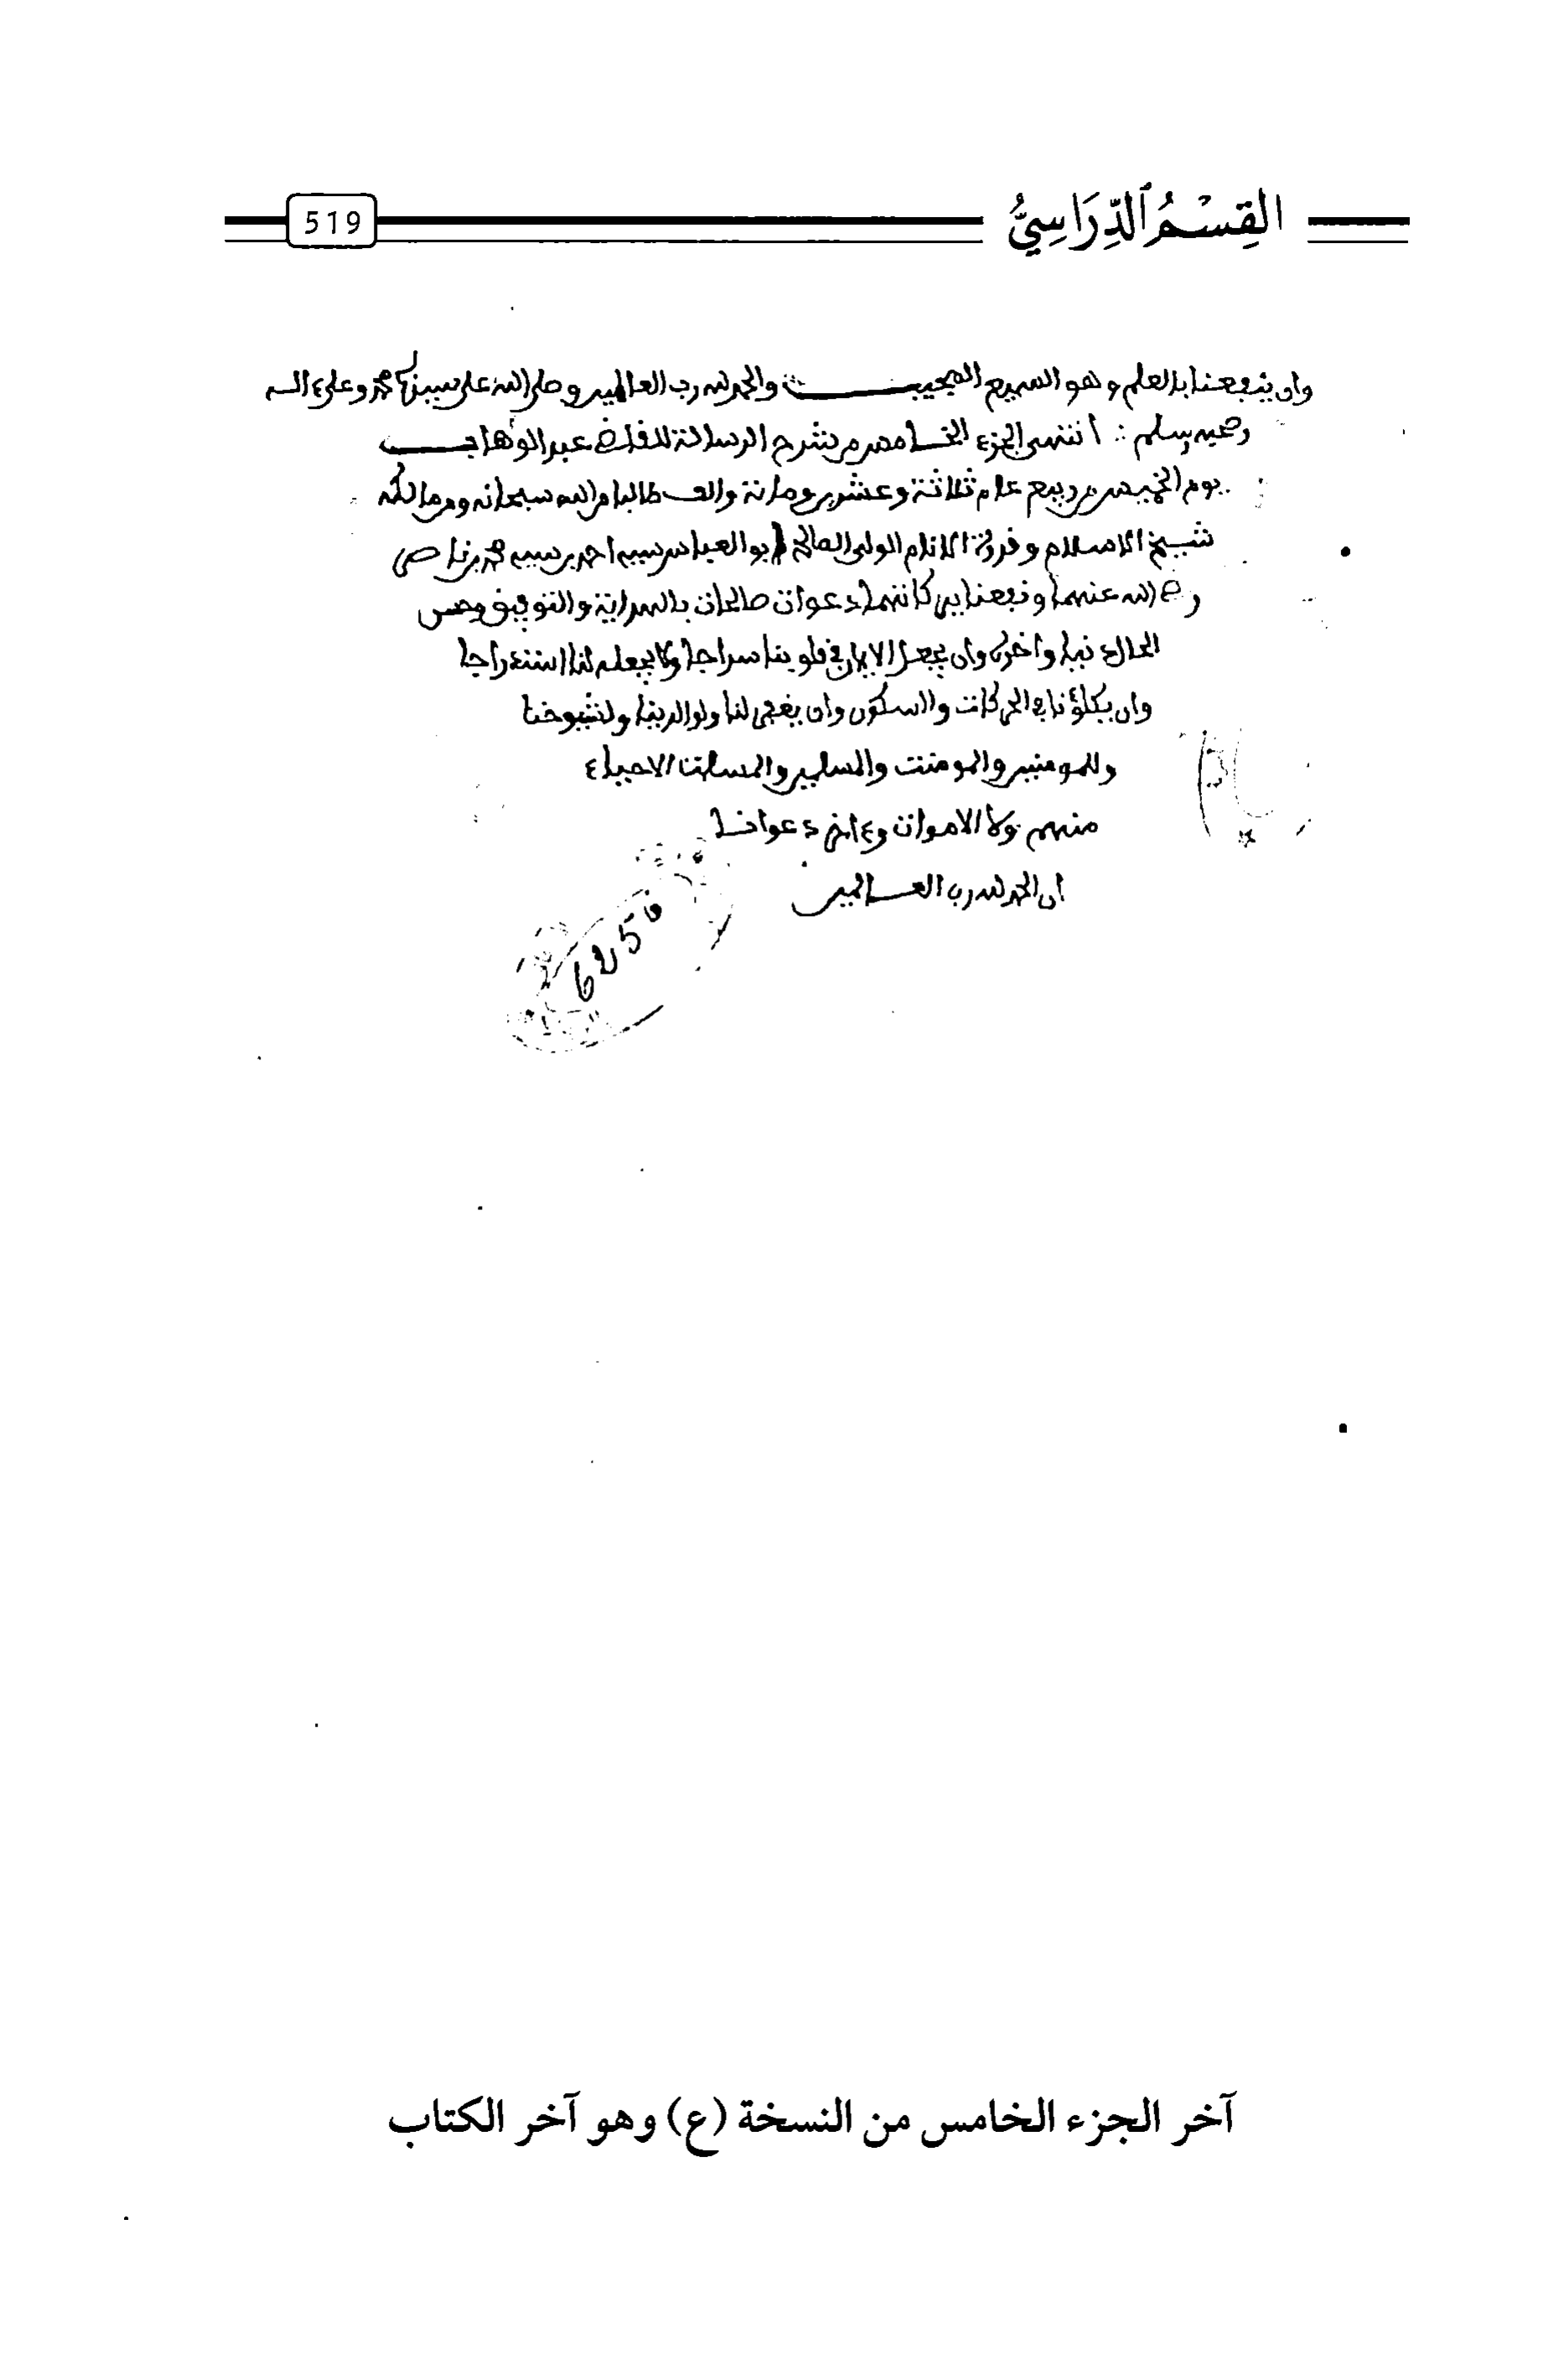 القِسْمُ ٱلدِّرَاسِيُّ
519
وان ينفعنا بالعلم وهو السميع المجيب والحمد لله رب العالمين وصلى الله على سيدنا محمد وعلى ءاله
وصحبه وسلم انتهى الجزء الخامس من شرح الرسالة للقاضي عبد الوهاب
يوم الخميس من ربيع عام ثلاثة وعشرين ومائة والف طالبا من الله سبحانه ومن مالكه
شيخ الاسلام وقدوة الانام الولي الصالح ابو العباس سيدي احمد بن سيدي محمد بن ناصر
رضي الله عنهما ونفعنا بهما دعوات صالحات بالهداية والتوفيق وحسن
الحال وان يجعل الايمان في قلوبنا سراجا ولا يجعله لنا استدراجا
وان يكلؤنا في الحركات والسكون وان يغفر لنا ولوالدينا ولشيوخنا
وللمومنين والمومنت والمسلمين والمسلمت الاحياء
منهم والاموات وءاخر دعوانا
ان الحمد لله رب العالمين
6250
آخر الجزء الخامس من النسخة (ع) وهو آخر الكتاب